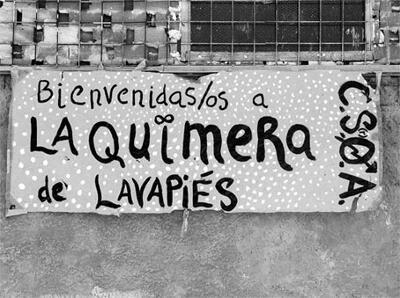 Bienvenidas/os a
LA QUÏMERA
de LAVAPIÉS
C.S.O.A.